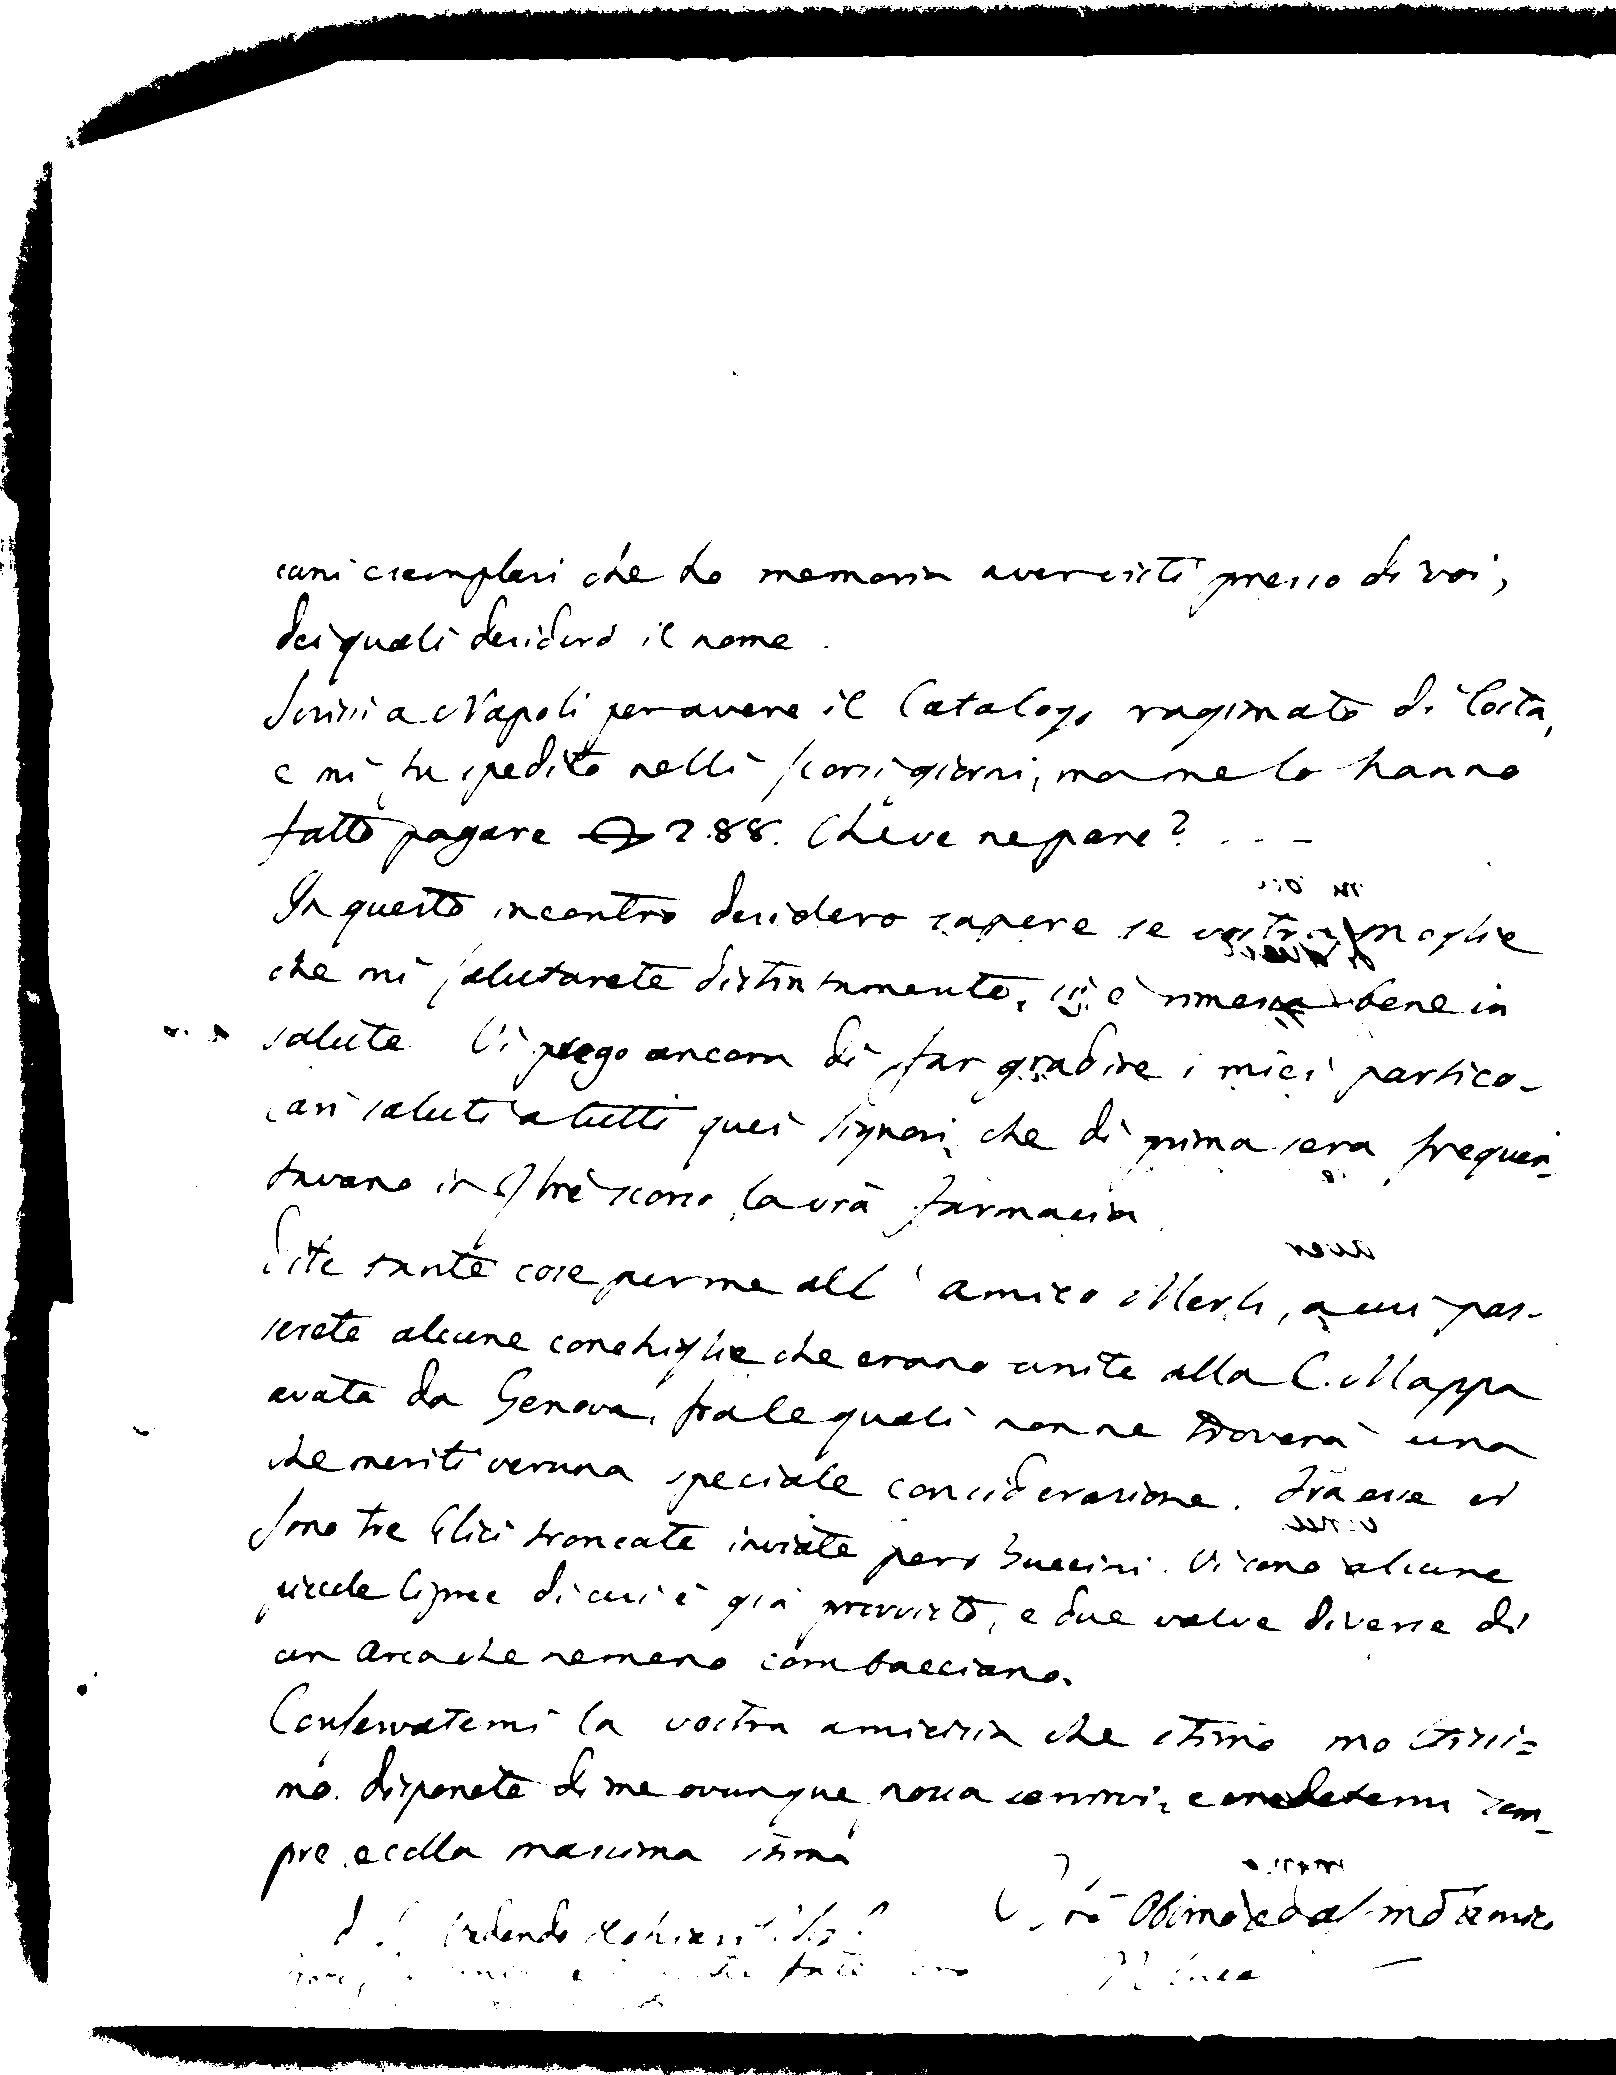 cuni esemplari che ho memoria aver visti presso di voi,
dei quali desidero il nome.
Scrissi a Napoli per avere il Catalogo ragionato di Costa,
e mi fu spedito nelli scorsi giorni, ma me lo hanno
fatto pagare 2.88. Che ve ne pare? . . . –
In questo incontro desidero sapere se vostra moglie
che mi salutarete distintamente, si è rimessa bene in
salute Vi prego ancora di far gradire i miei partico-
lari saluti a tutti quei Signori che di prima sera frequen-
tavano in scorso la vrã farmacia
Dite tante cose per me all'amico Merli, a cui pas-
serete alcune conchiglie che erano unite alla C. Mappa
avata da Genova, fra le quali non ne troverà una
che meriti veruna speciale considerazione. Fra esse vi
sono tre Elici troncate inviate però Succini. Vi sono alcune
piccole Cipree di cui è già provvisto, e due valve diverse di
un Arca che nemeno combacciano.
Conservatemi la vostra amicizia che stimo moltissi=
mo. disponete di me ovunque possa servirvi, e credetemi sem-
pre, e colla massima stima
amico